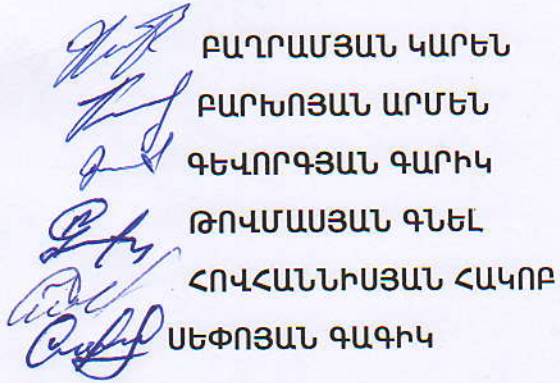 ԲԱՂՐԱՄՅԱՆ ԿԱՐԵՆ
ԲԱՐԽՈՅԱՆ ԱՐՄԵՆ
ԳԵՎՈՐԳՅԱՆ ԳԱՐԻԿ
ԹՈՎՄԱՍՅԱՆ ԳՆԵԼ
ՀՈՎՀԱՆՆԻՍՅԱՆ ՀԱԿՈԲ
ՍԵՓՈՅԱՆ ԳԱԳԻԿ